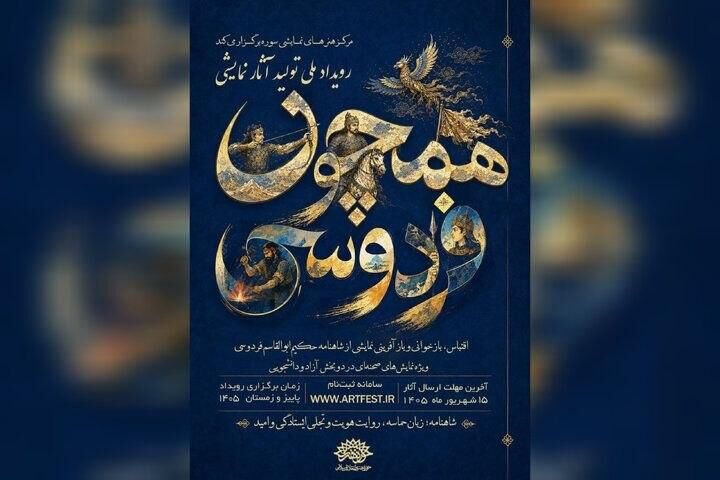 مرکز هنرهای نمایشی سوره برگزار می کند
رویداد ملی تولید آثار نمایشی
همچون
فردوسی
اقتباس، بازخوانی و بازآفرینی نمایشی از شاهنامه حکیم ابوالقاسم فردوسی
ویژه نمایش های صحنه ای در دو بخش آزاد و دانشجویی
آخرین مهلت ارسال آثار
۱۵ شهریور ماه ۱۴۰۵
سامانه ثبت‌نام
WWW.ARTFEST.IR
زمان برگزاری رویداد
پاییز و زمستان ۱۴۰۵
شاهنامه؛ زبان حماسه، روایت هویت و تجلی ایستادگی و امید